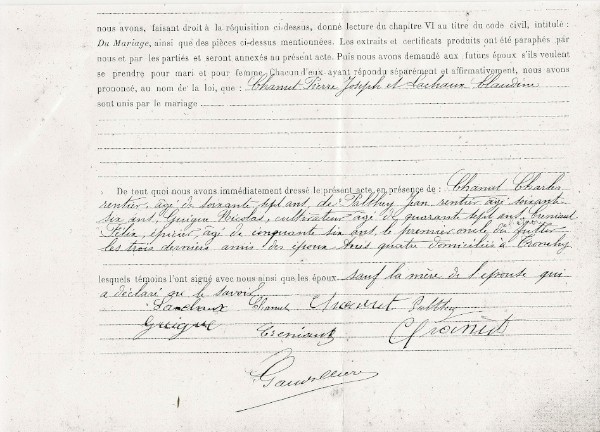 nous avons, faisant droit à la réquisition ci-dessus, donné lecture du chapitre VI au titre du code civil, intitulé :
Du Mariage, ainsi que des pièces ci-dessus mentionnées. Les extraits et certificats produits ont été paraphés par
nous et par les parties et seront annexés au présent acte. Puis nous avons demandé aux futurs époux s'ils veulent
se prendre pour mari et pour femme. Chacun d'eux ayant répondu séparément et affirmativement, nous avons
prononcé, au nom de la loi, que : Chamet Pierre Joseph et Lachaux Claudine
sont unis par le mariage
De tout quoi nous avons immédiatement dressé le présent acte, en présence de : Chamet Charles
rentier, âgé de soixante sept ans, de Patthey Jean, rentier âgé soixante
six ans, Guigue Nicolas, cultivateur âgé de quarante sept ans,
Félix, épicier âgé de cinquante six ans, le premier oncle du
les trois derniers amis des époux tous quatre domiciliés à
lesquels témoins l'ont signé avec nous ainsi que les époux sauf la mère de l'épouse qui
a déclaré ne le savoir
Lachaux Chamet Patthey
Guigue